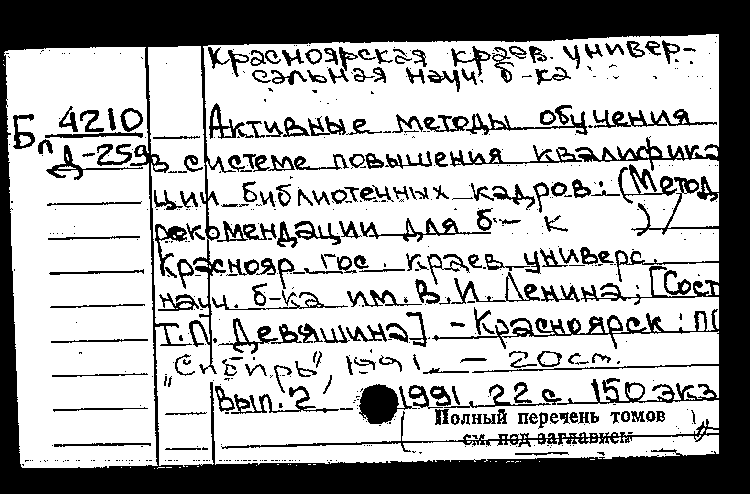 Красноярская краев. универ-
сальная науч. б-ка
Бп 4210
Д-259
Активные методы обучения
в системе повышения квалифика
ции библиотечных кадров: (Метод
рекомендации для б-к )/
Краснояр. гос. краев. универс.
науч. б-ка им. В.И. Ленина; [Сост
Т.П. Девяшина]. - Красноярск: П
"Сибирь", 1991. - 20 см.
Вып. 2, 1991. 22 с. 150 экз
Полный перечень томов
см. под заглавием